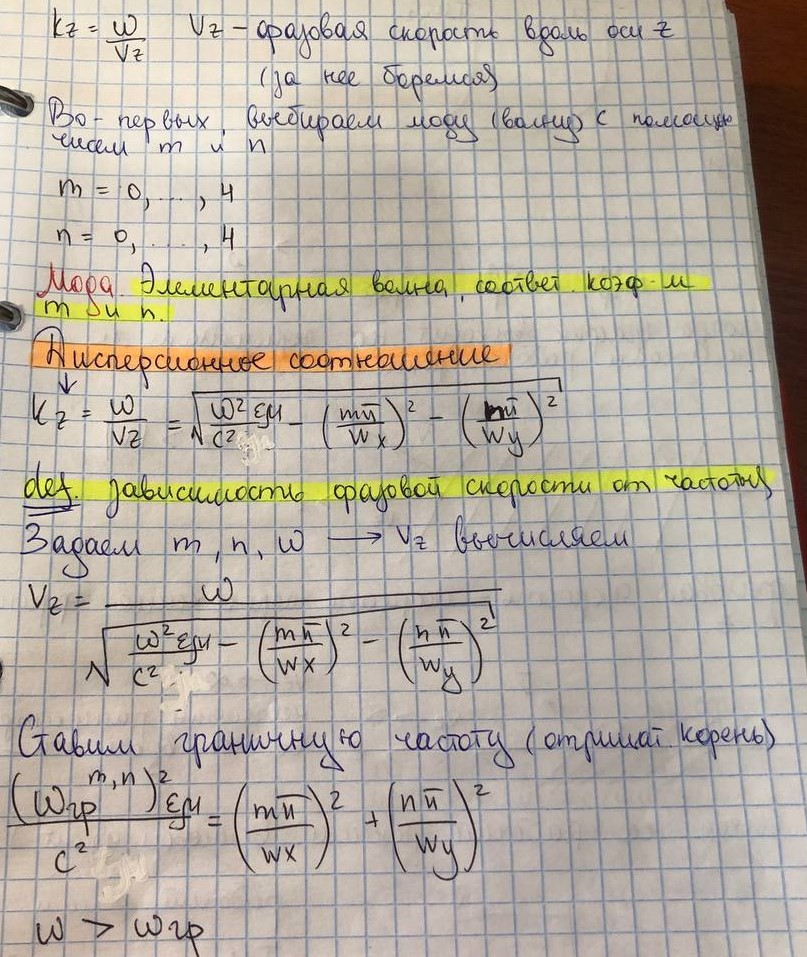 kz = ω/Vz Vz – фазовая скорость вдоль оси z
(за нее боремся)
Во-первых, выбираем моду (волну) с помощью
чисел m и n
m = 0, ..., 4
n = 0, ..., 4
Мода. Элементарная волна, соответ. коэф-м
m и n.
Дисперсионное соотношение
↓
kz = ω/Vz = √(ω²εμ/c² – (mπ/Wx)² – (nπ/Wy)²)
def. зависимость фазовой скорости от частоты
Задаем m, n, ω → Vz вычисляем
Vz = ω/√(ω²εμ/c² – (mπ/Wx)² – (nπ/Wy)²)
Ставим граничную частоту (отрицат. корень)
(ωгр^m,n)²εμ/c² = (mπ/Wx)² + (nπ/Wy)²
ω > ωгр